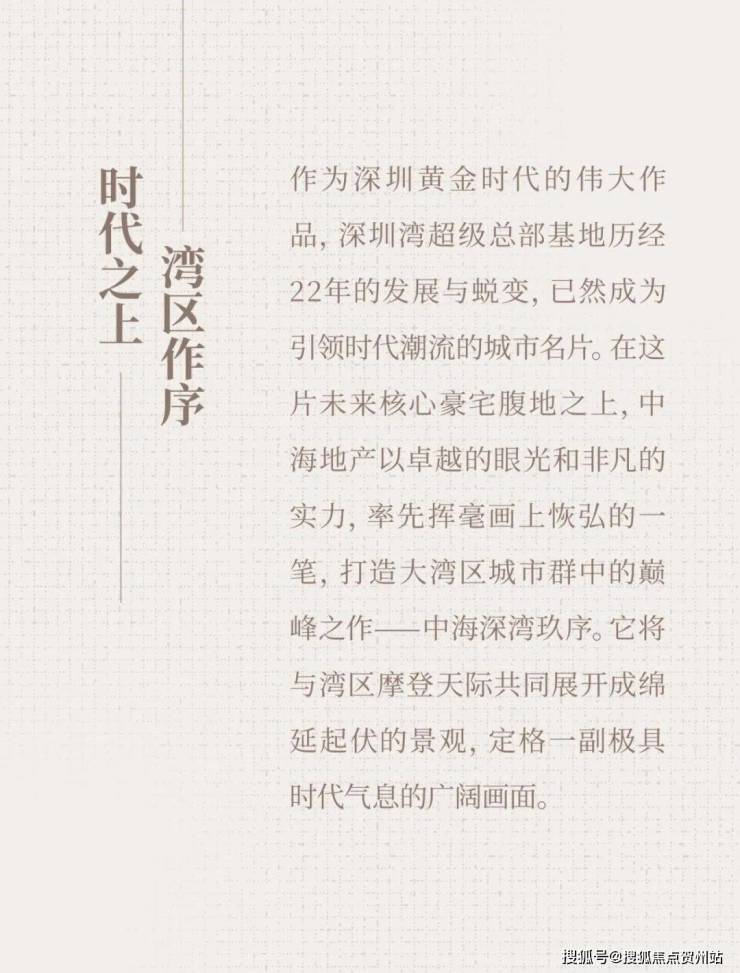 时代之上
湾区作序
作为深圳黄金时代的伟大作
品，深圳湾超级总部基地历经
22年的发展与蜕变，已然成为
引领时代潮流的城市名片。在这
片未来核心豪宅腹地之上，中
海地产以卓越的眼光和非凡的
实力，率先挥毫画上恢弘的一
笔，打造大湾区城市群中的巅
峰之作——中海深湾玖序。它将
与湾区摩登天际共同展开成绵
延起伏的景观，定格一副极具
时代气息的广阔画面。
搜狐号@搜狐焦点贺州站